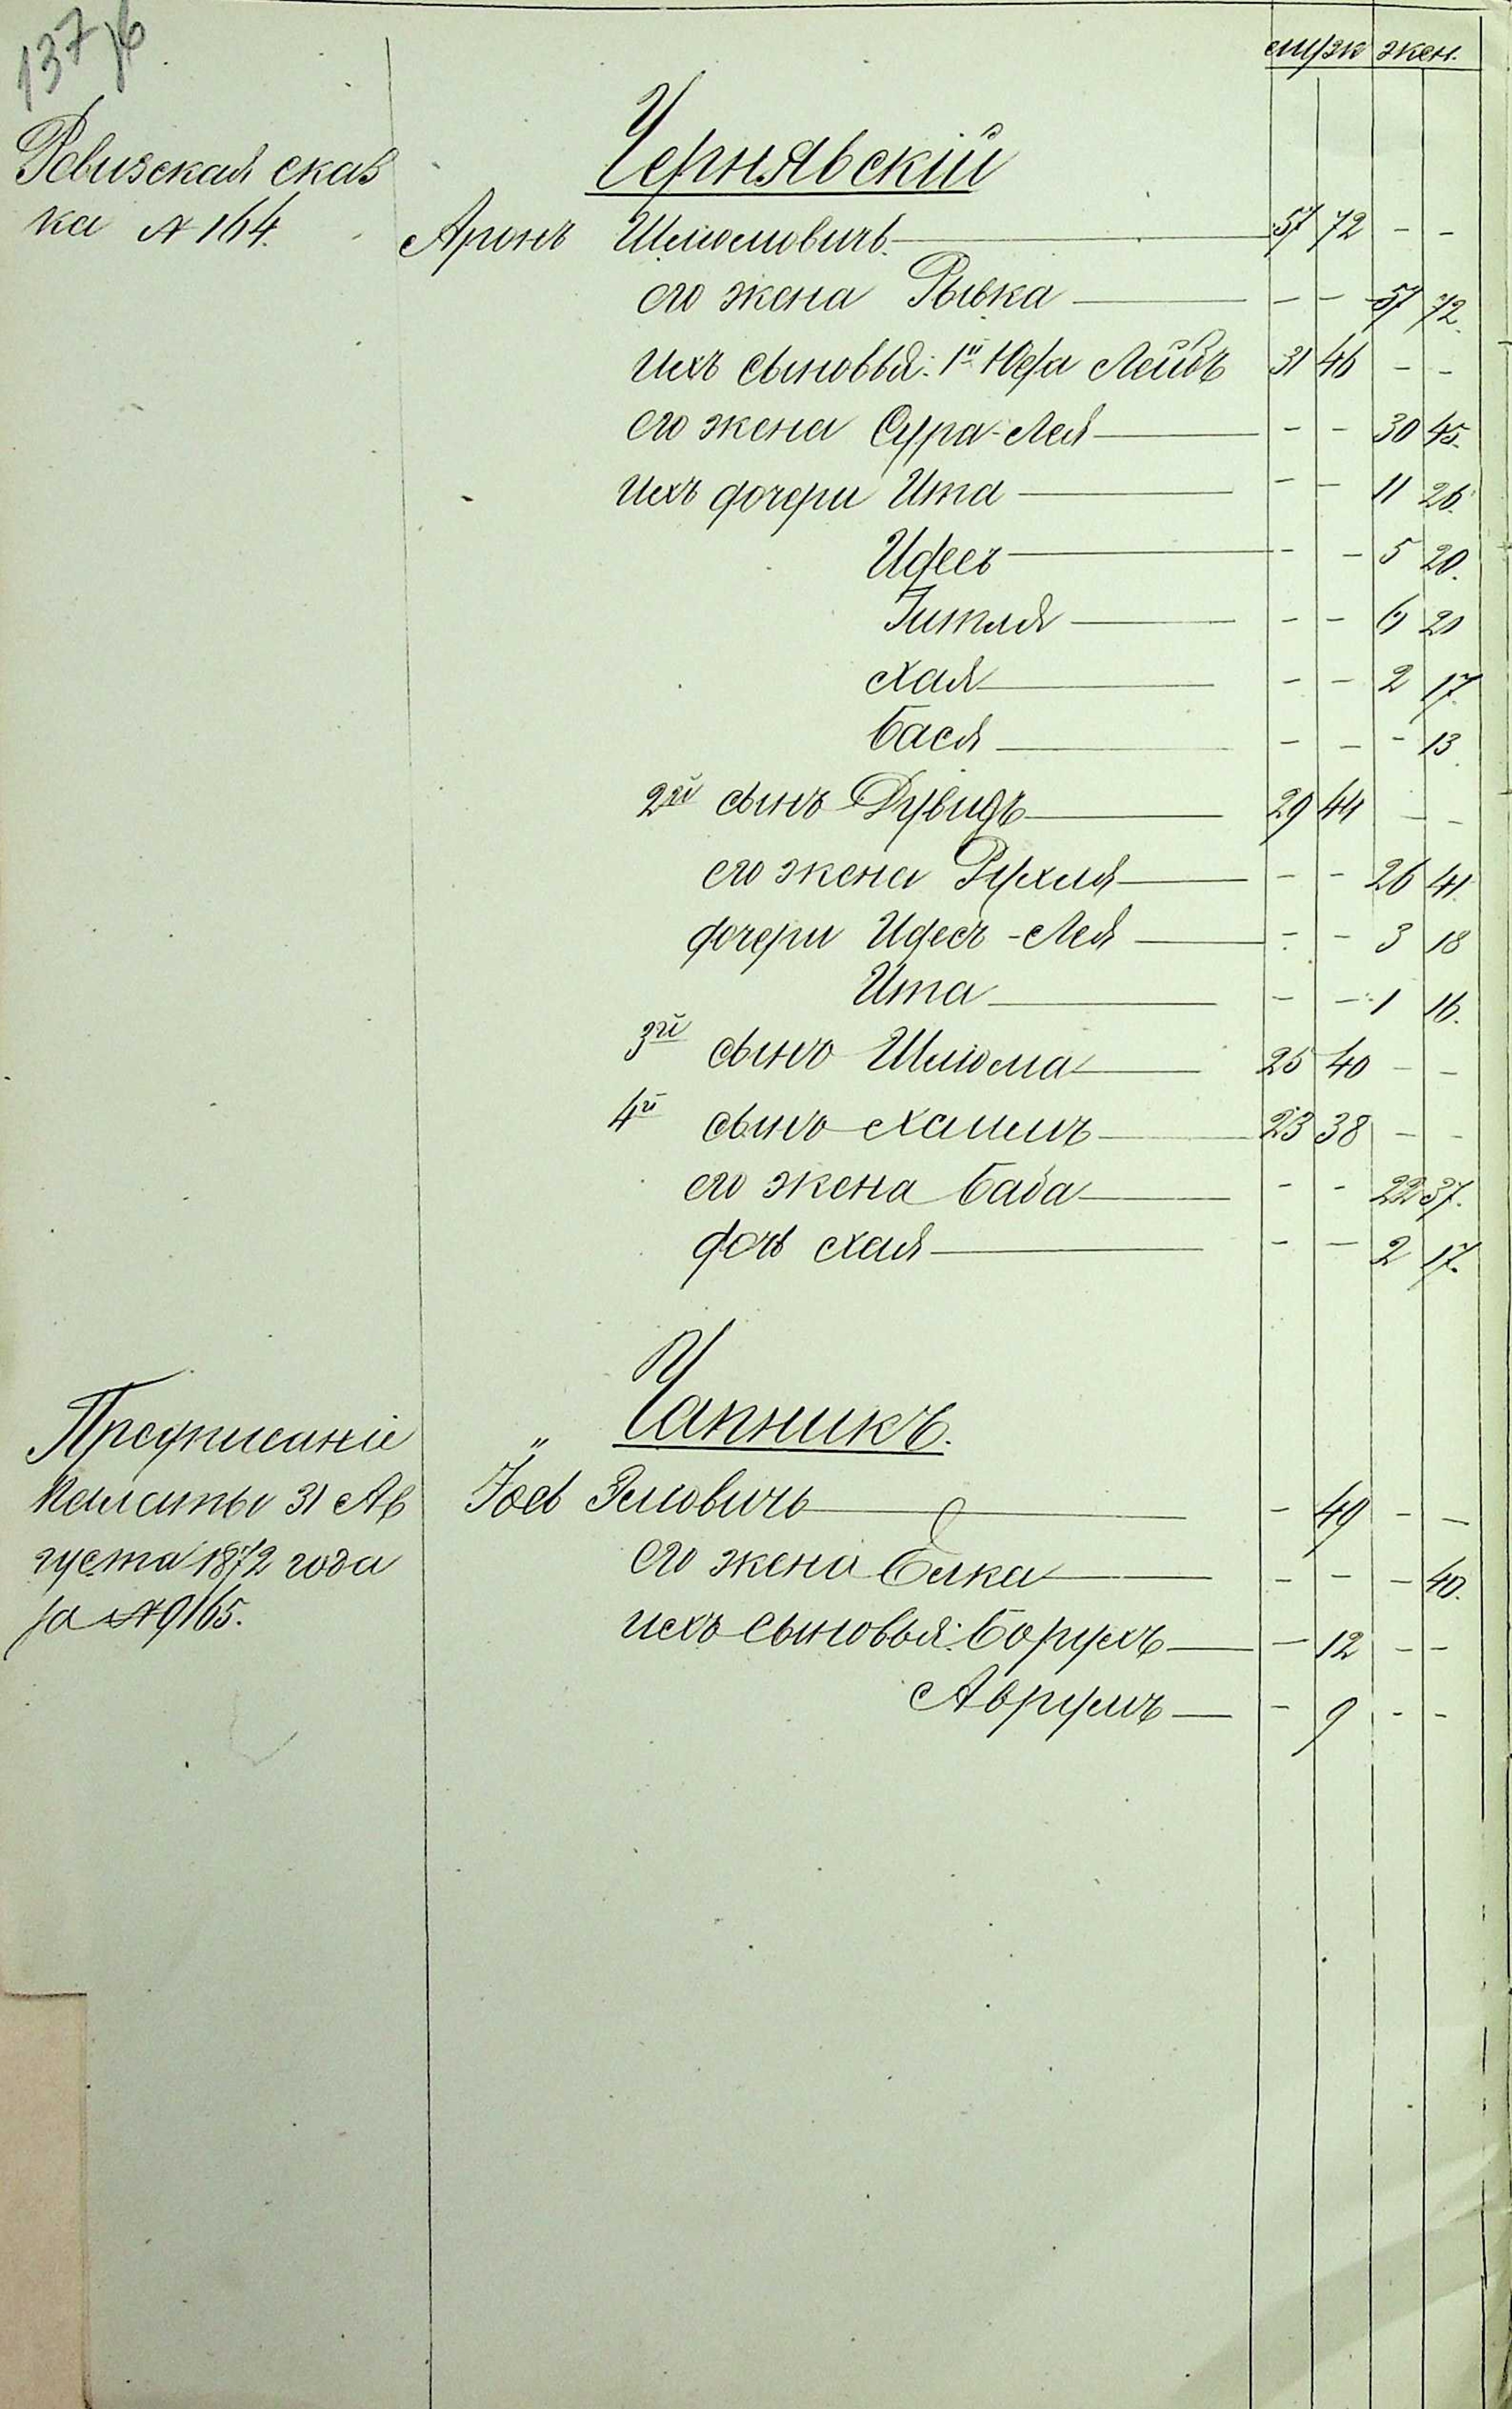 137 об
муж жен.
Ревизская сказ
ка № 164.
Чернявскій
Аронъ Шліомовичъ. 57 72 - -
его жена Рывка - - 57 72.
ихъ сыновья: 1й Юфа Лейбъ 31 46 - -
его жена Сура-Лея - - 30 45.
ихъ дочери Ита - - 11 26.
Идесъ - - 5 20.
Гитля - - 20
Хая - - 2 17.
Бася - - - 13.
2й сынъ Дувидъ 29 44 - -
его жена Рухля - - 26 41.
дочери Идесъ-Лея - - 3 18
Ита - - 1 16.
3й сынъ Шліома 25 40 - -
4й сынъ Хаимъ 23 38 - -
его жена Баба - - 22 37.
дочь Хая - - 2 17.
Чапникъ.
Предписаніе
Палаты 31 Ав
густа 1872 года
за № 9165.
" Іось Зеловичъ - 49 - -
его жена Елка - - - 40.
ихъ сыновья: Борухъ - 12 - -
Аврумъ - 9 - -